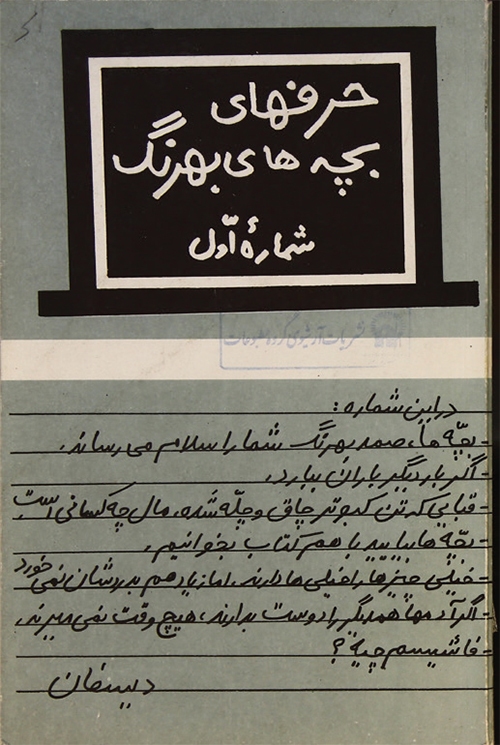 حرفهای
بچه های بهرنگ
شمارهٔ اوّل
نشریات آرشیوی گروه مطبوعات
در این شماره:
- بچّه ها، صمد بهرنگ شما را سلام می رساند.
- اگر بار دیگر باران ببارد.
- قبایی که تن کبوتر چاق و چلّه شده، مال چه کسانی است
- بچّه ها بیایید با هم کتاب بخوانیم.
- خیلی چیزها را خیلی ها دارند، اما زیاد هم بدردشان نمی خورد
- اگر آدمها همدیگر را دوست بدارند، هیچ وقت نمی میرند.
- فاشیسم چیه؟